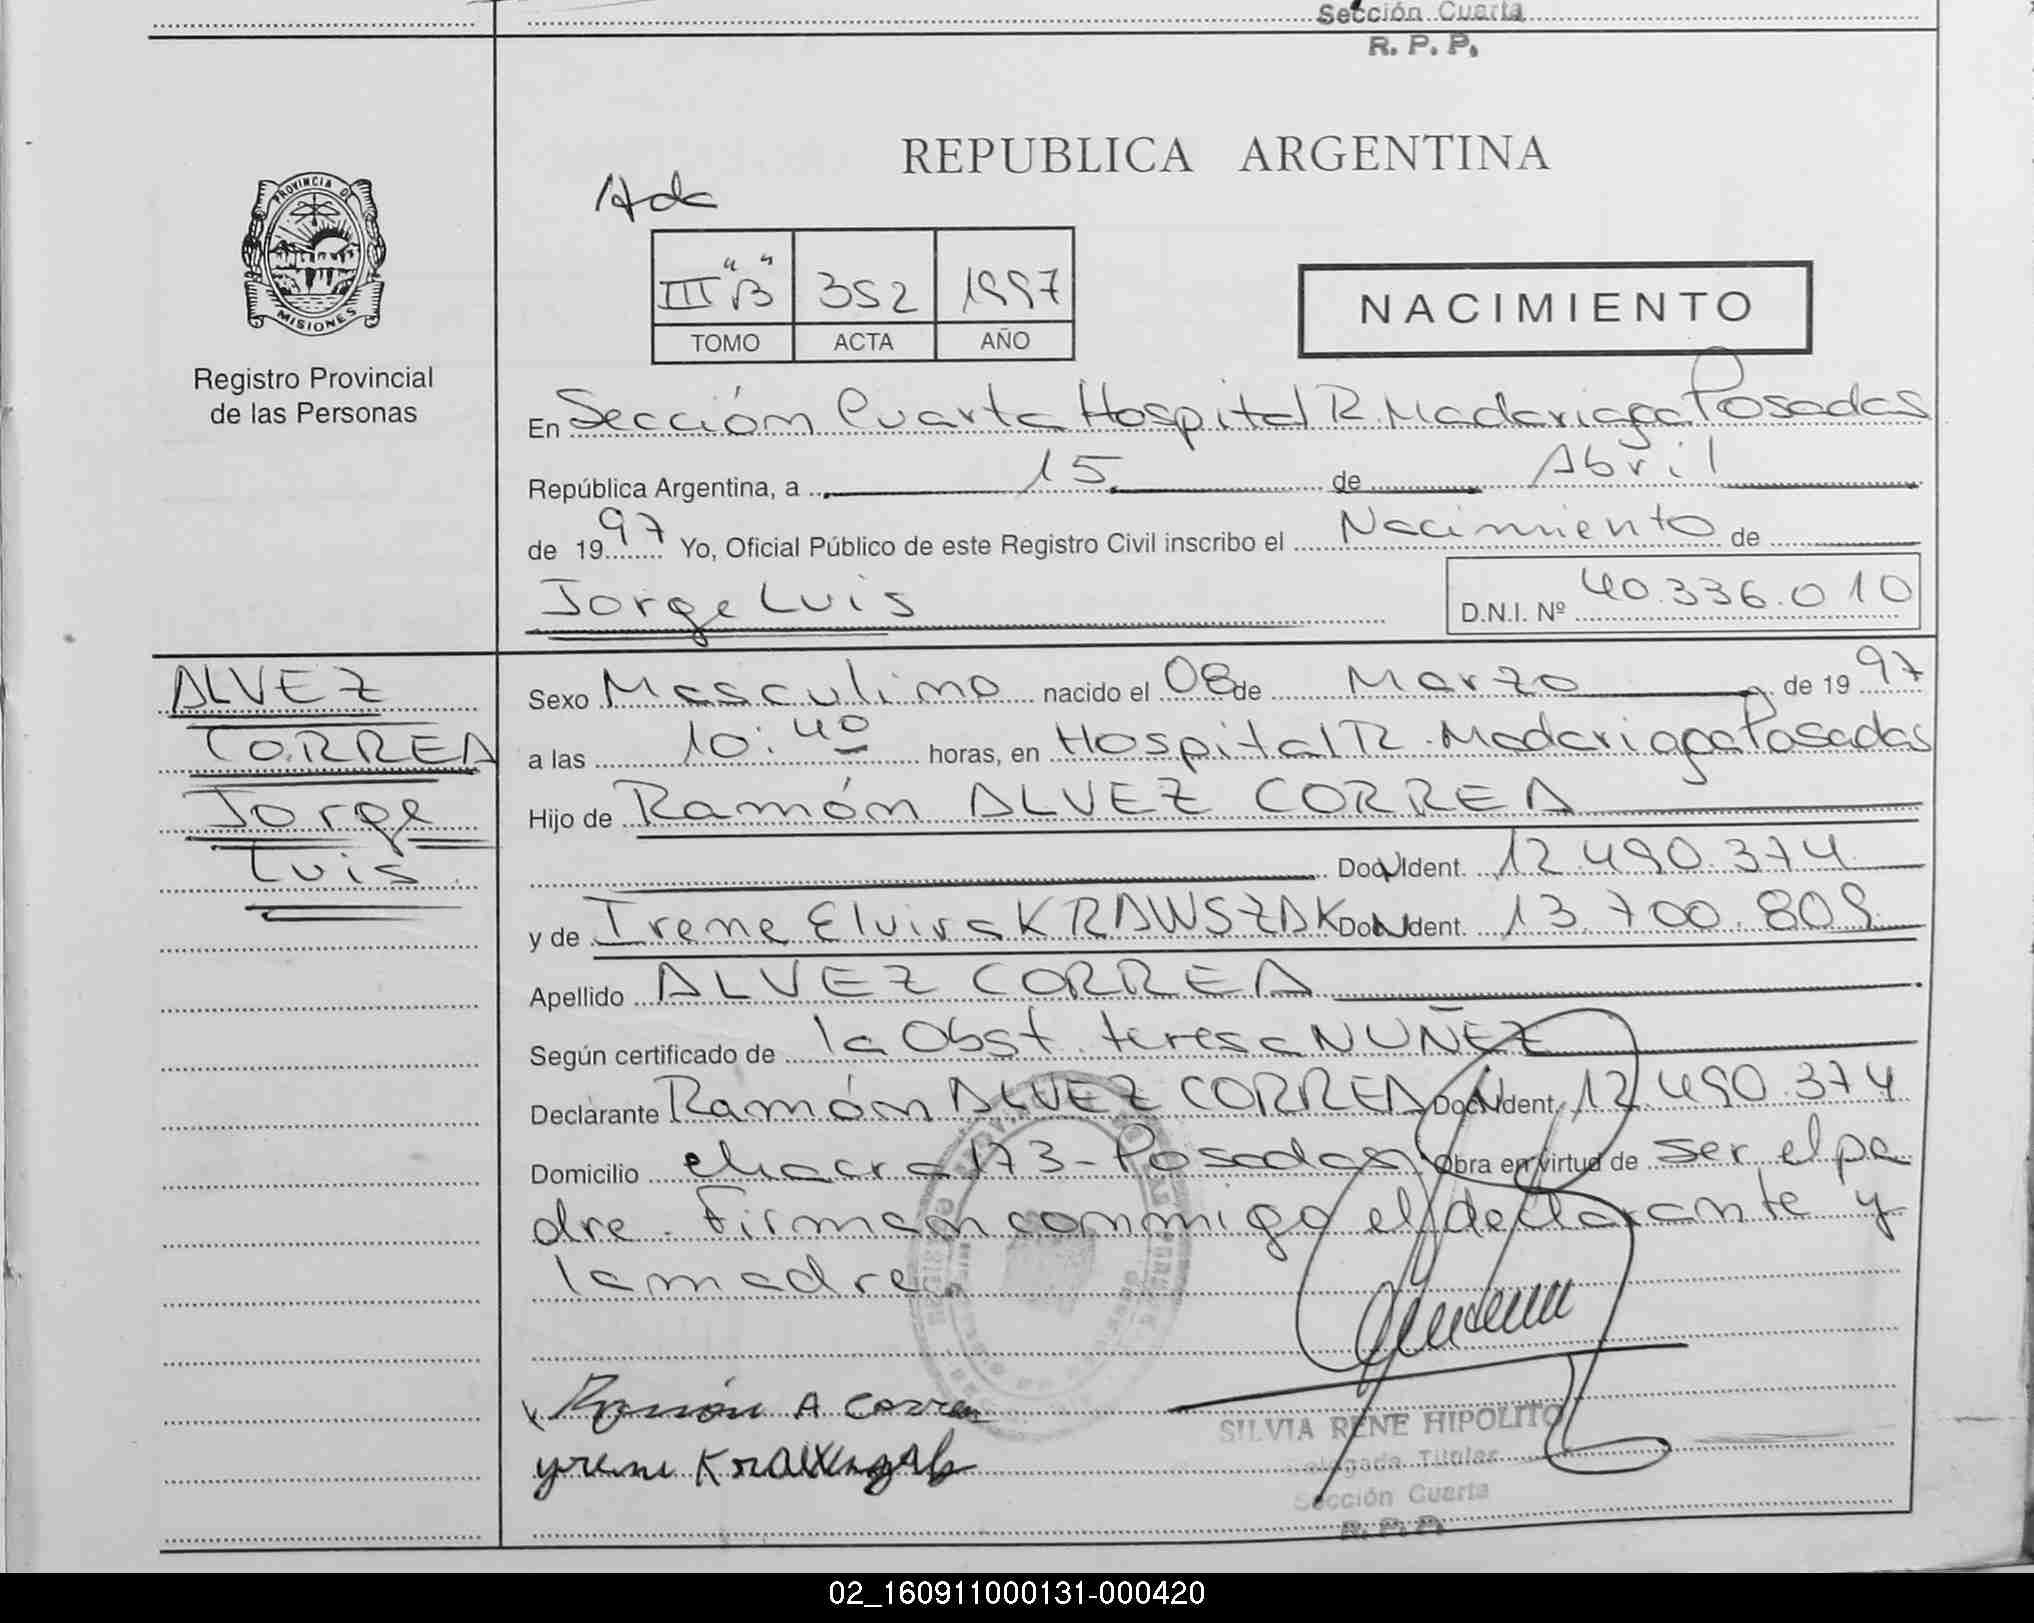 Sección Cuarta
R. P. P.
REPUBLICA ARGENTINA
PROVINCIA DE
MISIONES
Registro Provincial
de las Personas
III "B" 352 1997
TOMO ACTA AÑO
NACIMIENTO
En Sección Cuarta Hospital R. Madariaga Posadas
República Argentina, a 15 de Abril
de 1997 Yo, Oficial Público de este Registro Civil inscribo el Nacimiento de
Jorge Luis D.N.I. Nº 40.336.010
ALVEZ
CORREA
Jorge
Luis
Sexo Masculino nacido el 08 de Marzo de 1997
a las 10:40 horas, en Hospital R. Madariaga Posadas
Hijo de Ramón ALVEZ CORREA
Doc. Ident. 12.490.374
y de Irene Elvira KRAWSZAK Doc. Ident. 13.700.809
Apellido ALVEZ CORREA
Según certificado de la Obst. teresa NUÑEZ
Declarante Ramón ALVEZ CORREA Doc. Ident. 12.490.374
Domicilio chacra 173 - Posadas Obra en virtud de ser el pa
dre. Firman conmigo el declarante y
la madre
Ramón A Correa
SILVIA RENE HIPOLITO
Delegada Titular
Sección Cuarta
R. P. P.
02_160911000131-000420